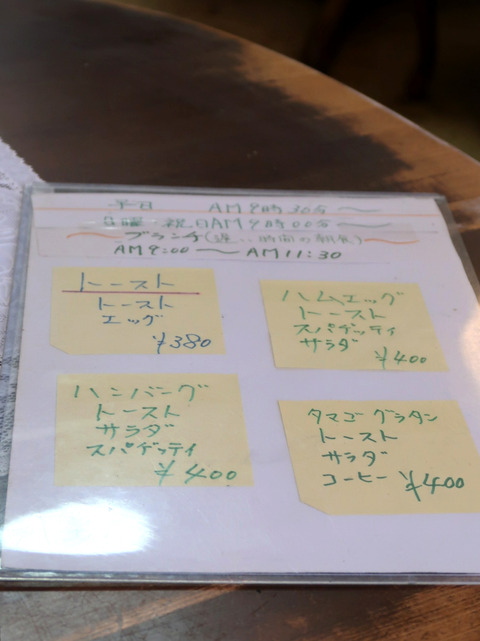 平日 AM 9時30分 〜
日曜・祝日 AM 9時00分 〜
〜 ブランチ(遅い時間の朝食) 〜
AM 9:00 〜 AM 11:30
トースト
トースト
エッグ
¥380
ハムエッグ
トースト
スパゲッティ
サラダ
¥400
ハンバング
トースト
サラダ
スパゲッティ
¥400
タマゴグラタン
トースト
サラダ
コーヒー ¥400